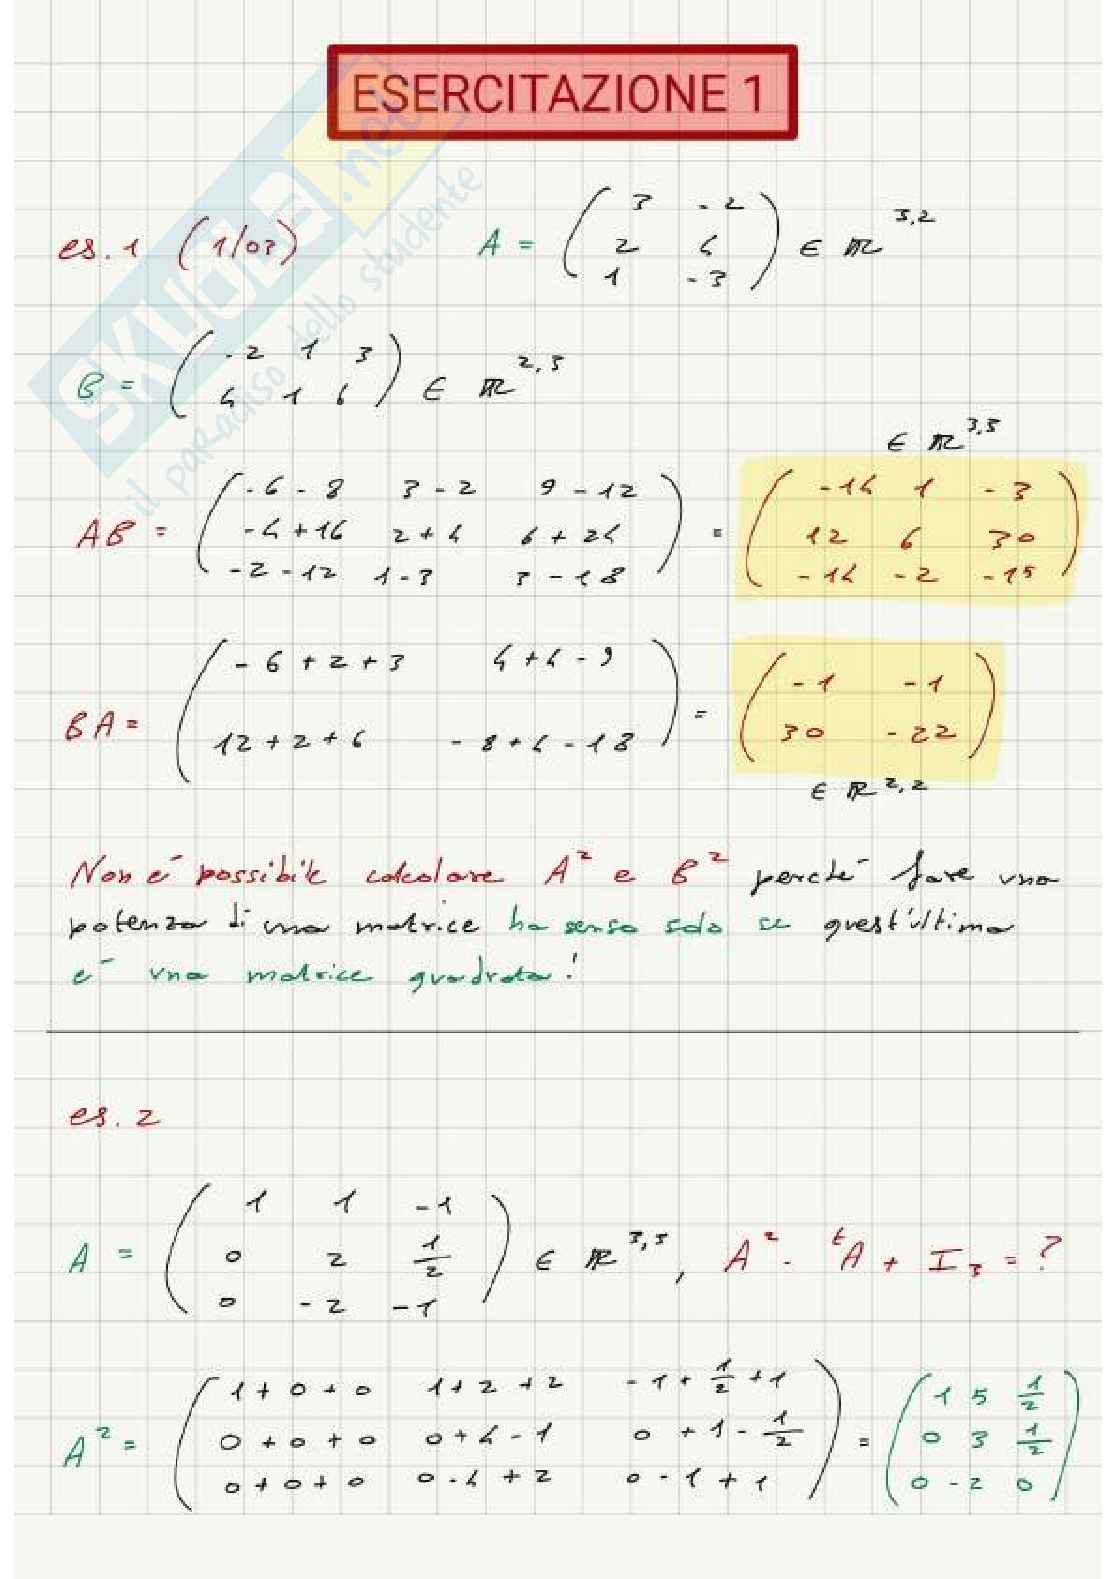 ESERCITAZIONE 1
SKUOLA.net
il paradiso dello studente
es. 1 (1/03) A = ( 3 -2 ; 2 4 ; 1 -3 ) ∈ ℝ^3,2
B = ( -2 1 3 ; 4 1 6 ) ∈ ℝ^2,3
∈ ℝ^3,3
AB = ( -6-8 3-2 9-12 ; -4+16 2+4 6+24 ; -2-12 1-3 3-18 ) = ( -14 1 -3 ; 12 6 30 ; -14 -2 -15 )
BA = ( -6+2+3 4+4-9 ; 12+2+6 -8+4-18 ) = ( -1 -1 ; 30 -22 )
∈ ℝ^2,2
Non é possibile calcolare A² e B² perché fare una
potenza di una matrice ha senso solo se quest'ultima
é una matrice quadrata!
es. 2
A = ( 1 1 -1 ; 0 2 1/2 ; 0 -2 -1 ) ∈ ℝ^3,3 , A² - ᵗA + I₃ = ?
A² = ( 1+0+0 1+2+2 -1+1/2+1 ; 0+0+0 0+4-1 0+1-1/2 ; 0+0+0 0-4+2 0-1+1 ) = ( 1 5 1/2 ; 0 3 1/2 ; 0 -2 0 )